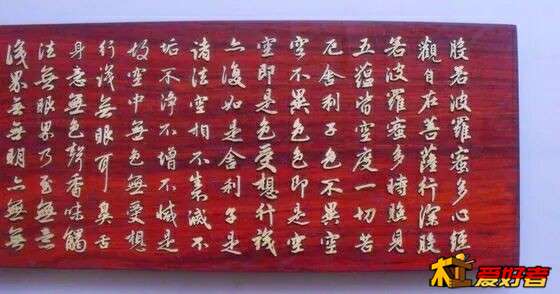 般若波羅蜜多心經
觀自在菩薩行深般
若波羅蜜多時照見
五蘊皆空度一切苦
厄舍利子色不異空
空不異色色即是空
空即是色受想行識
亦復如是舍利子是
諸法空相不生滅不
垢不淨不增不減是
故空中無色無受想
行識無眼耳鼻舌
身意無色聲香味觸
法無眼界乃至無意
識界無無明亦無無
爱好者